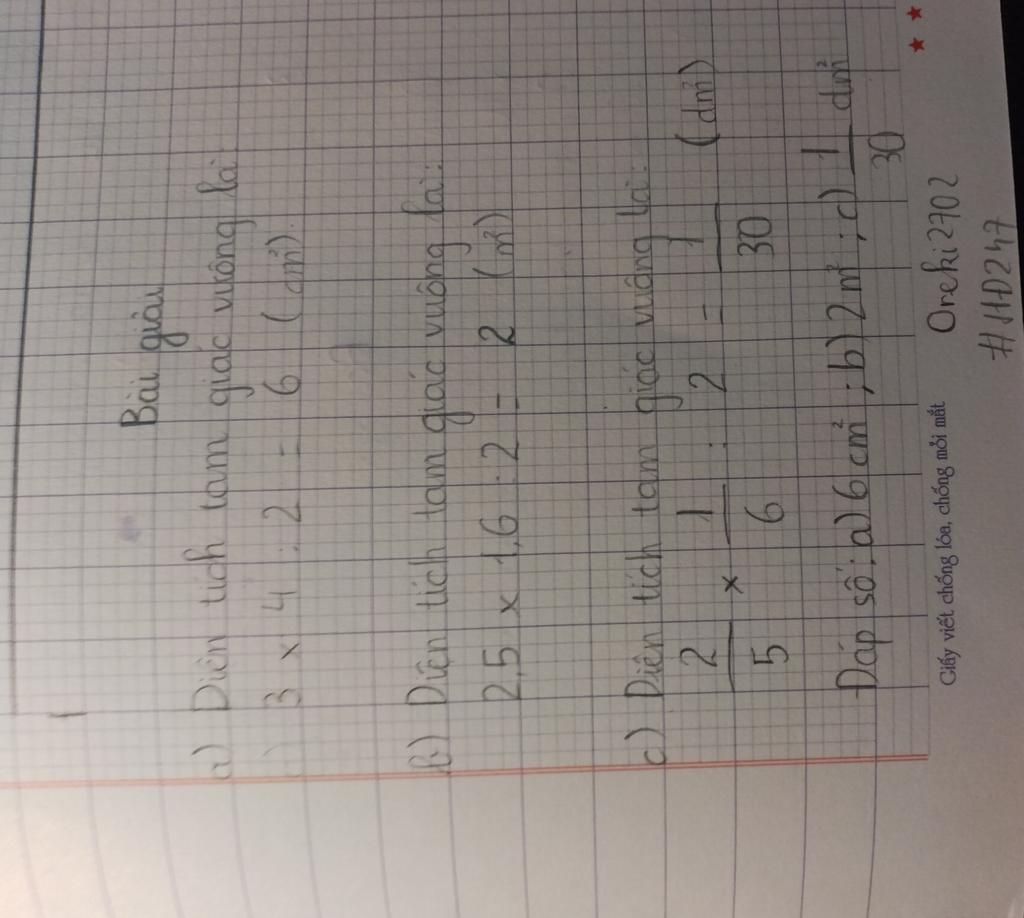 Bài giải
a) Diện tích tam giác vuông là:
3 x 4 : 2 = 6 (cm²)
b) Diện tích tam giác vuông là:
2,5 x 1,6 : 2 = 2 (m²)
c) Diện tích tam giác vuông là:
2/5 x 1/6 : 2 = 1/30 (dm²)
Đáp số: a) 6 cm²; b) 2 m²; c) 1/30 dm²
Giấy viết chống lóa, chống mỏi mắt
Oreki2702
#HD247